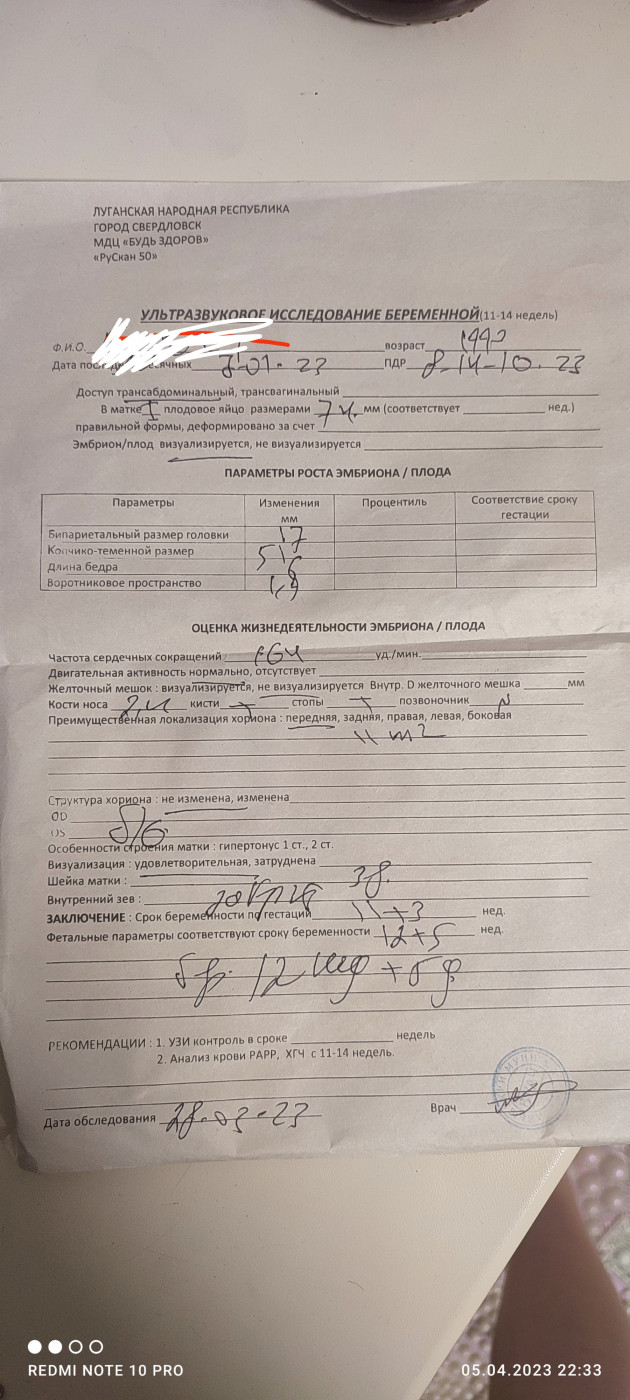 ЛУГАНСКАЯ НАРОДНАЯ РЕСПУБЛИКА
ГОРОД СВЕРДЛОВСК
МДЦ «БУДЬ ЗДОРОВ»
«РуСкан 50»
УЛЬТРАЗВУКОВОЕ ИССЛЕДОВАНИЕ БЕРЕМЕННОЙ (11-14 недель)
Ф.И.О. возраст 1992
Дата 01.23 ПДР 14-10.23
Доступ трансабдоминальный, трансвагинальный
В матке I плодовое яйцо размерами 74 мм (соответствует нед.)
правильной формы, деформировано за счет
Эмбрион/плод визуализируется, не визуализируется
ПАРАМЕТРЫ РОСТА ЭМБРИОНА / ПЛОДА
Параметры Изменения мм Процентиль Соответствие сроку гестации
Бипариетальный размер головки 17
Копчико-теменной размер 51
Длина бедра 6
Воротниковое пространство
ОЦЕНКА ЖИЗНЕДЕЯТЕЛЬНОСТИ ЭМБРИОНА / ПЛОДА
Частота сердечных сокращений 164 уд./мин.
Двигательная активность нормально, отсутствует
Желточный мешок : визуализируется, не визуализируется Внутр. D желточного мешка мм
Кости носа кисти + стопы + позвоночник N
Преимущественная локализация хориона : передняя, задняя, правая, левая, боковая
Структура хориона : не изменена, изменена
OD
OS б/о
Особенности строения матки : гипертонус 1 ст., 2 ст.
Визуализация : удовлетворительная, затруднена
Шейка матки : 38
Внутренний зев : закрыт
ЗАКЛЮЧЕНИЕ : Срок беременности по гестации 11+3 нед.
Фетальные параметры соответствуют сроку беременности 12+5 нед.
бер. 12 нед + 5 д
РЕКОМЕНДАЦИИ : 1. УЗИ контроль в сроке недель
2. Анализ крови РАРР, ХГЧ с 11-14 недель.
Дата обследования 28.03.23 Врач
REDMI NOTE 10 PRO 05.04.2023 22:33